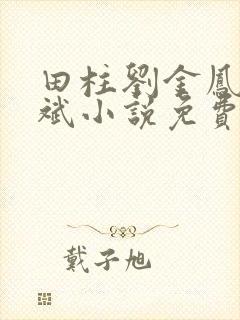 田柱劉金鳳
斌小說免費
戴子旭